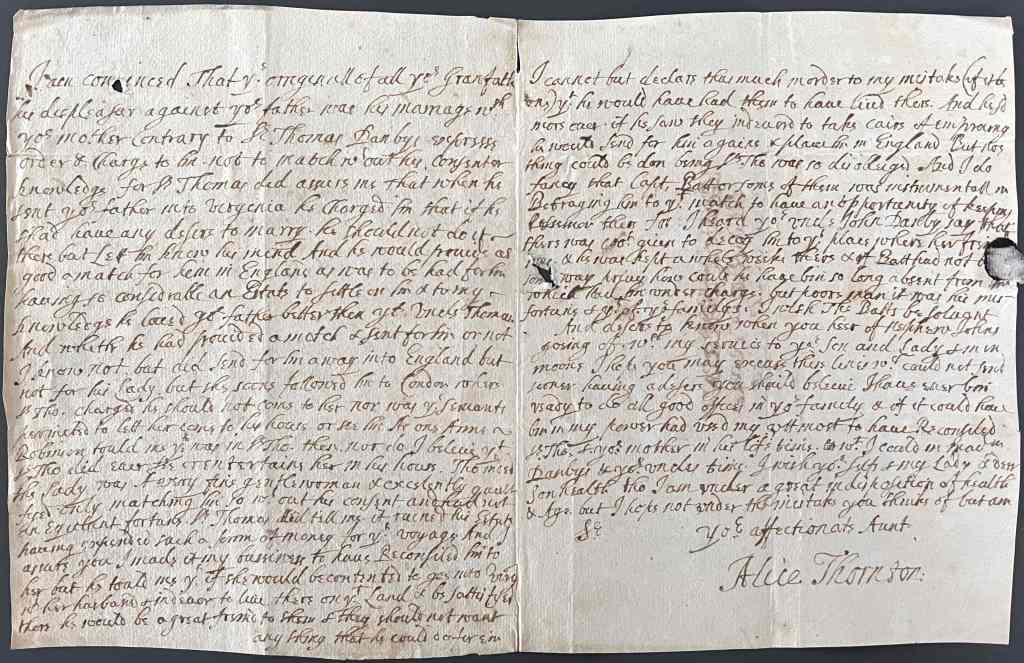 I am convinced That yr. originall of all yor. Granfath
his displeasur against yor. father was his marriage wth
yor. mother Contrary to Sr. Thomas Danbys expresse
order & Charge to him not to match wthout his Consent or
knowledge for Sr. Thomas did assure me That when he
sent yor. father into Vergenia he Charged him that if he
shad have any desire to marry he should not do it
there but Let him know his mind And he would provide as
good a match for hem in England as was to be had for him
having so considerable an Estate to settle on him & to my
knowledge he loved yor. father better then yor. Uncle Thomas
And whether he had provided a match & sent for him or not
I know not, but did send for him away into England but
not for his Lady, but she soone followed him to London where
Sr. Tho. charged he should not come to her nor was yr. servants
permitted to lett her come to his house or see him As one Anne
Robinson tould me yt. was in Sr. Tho. then, nor do I beleive yt.
Sr. Tho did ever see or entertaine her in his house. Tho indeed
the Lady was A very fine gentlewoman & excelently quali
fied only matching him so wthout his consent and had not
an Equivalent fortune Sr. Thomas did tell me it ruined his Estate
having expended such a some of money for yr. voyage And I
assure you I made it my bussiness to have Reconsiled him to
her but he tould me yt. if she would be contented to goe into Virg
wth her husband & indeavor to live there on yr. Land & be sattisfied
there he would be a great freind to them & they should not want
any thing that he could do for em
I cannot but declare thus much in order to my mistake (if it be
one) yt. he would have had them to have lived there. And he sd
moreover if he saw they indeavord to take caire & improving
he would send for him againe & place him in England But no
thing could be don being Sr. Tho. was so disobliged And I do
fancy that Capt. Batt or some of them was instrumentall in
Betraying him to yt. match to have an opportunity of keeping
Possession there for I heard yor. uncle John Danby say that
there was
& he was kept a whole weeke there & if Batt had not
way how could he have bin so long absent from
which had him under charge. but poore man it was his mis
fortune & yr. pr. yr. familyes. I wish The Batts be
And desire to know when you heer of Nephew Johns
doing of wt. my service to yor. Son and Lady & mine
more I hope you may excuse these lines wch. could not send
soner having a desire you should beleive I have ever bin
ready to do all good offices in yor. family & if it could have
bin in my power had used my utmost to have Reconsiled
Sr. Tho. & yor. mother in her life time as wt. I could in
Danbys & yor. uncles time. I wish yor. selfe & my Lady & dere
son health tho I am under a great indisposition of health
& Age. but I hope not under the mistake you thinke of but am
Sr
yor. affectionate Aunt
Alice Thornton: